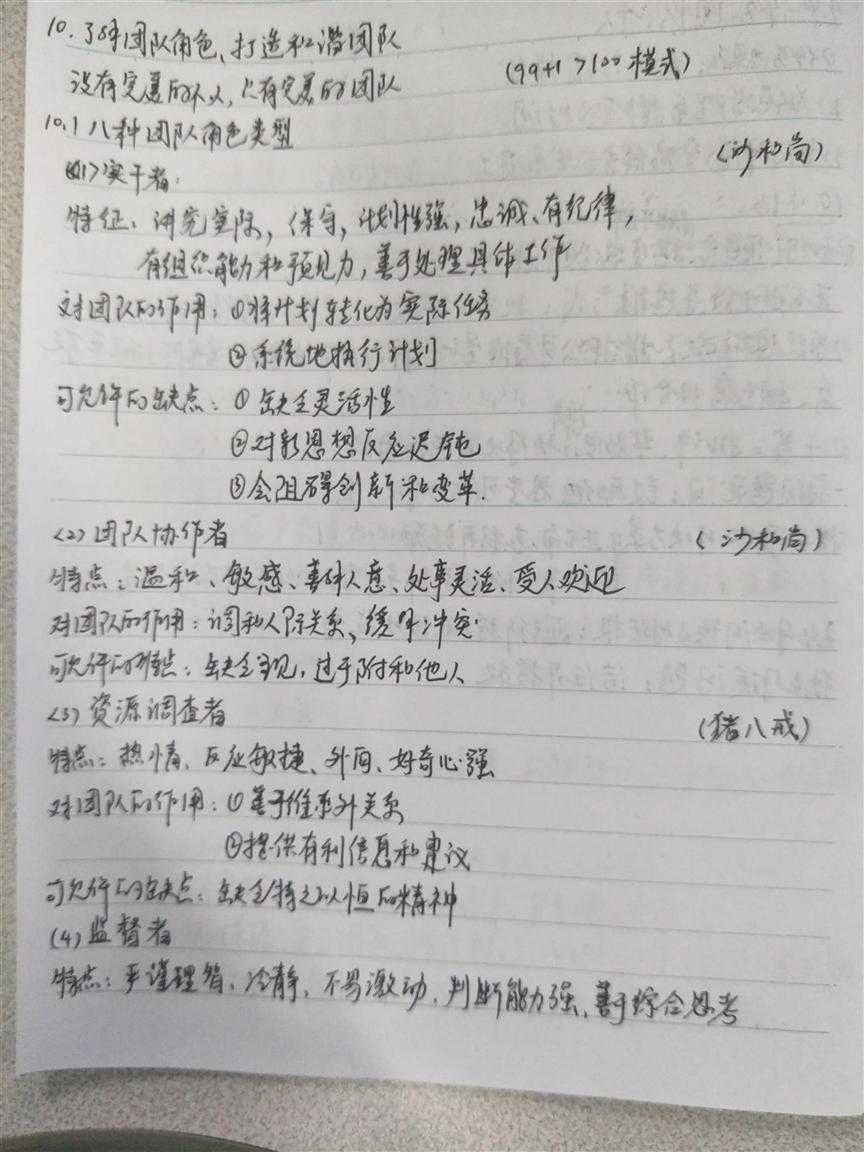 10.了解团队角色、打造和谐团队
没有完美的个人,只有完美的团队 (99+1>100模式)
10.1 八种团队角色类型
(1)实干者: (沙和尚)
特征:讲究实际,保守,计划性强,忠诚、有纪律,
有组织能力和预见力,善于处理具体工作
对团队的作用:①将计划转化为实际任务
②系统地执行计划
可允许的缺点:①缺乏灵活性
②对新思想反应迟钝
③会阻碍创新和变革.
<2>团队协作者 (沙和尚)
特点:温和、敏感、善解人意、处事灵活、受人欢迎
对团队的作用:调和人际关系、缓解冲突
可允许的缺点:缺乏主见,过于附和他人
<3>资源调查者 (猪八戒)
特点:热情、反应敏捷、外向、好奇心强
对团队的作用:①善于维系外关系
②提供有利信息和建议
可允许的缺点:缺乏持之以恒的精神
(4)监督者
特点:严谨理智、冷静、不易激动、判断能力强、善于综合思考